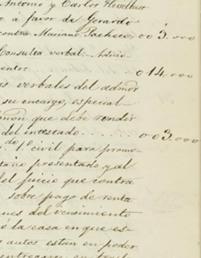 Antonio y Carlos
o á favor de Gerardo
contra Mariano Pacheco 003.000
Consulta verbal.
014.000
as verbales del admor
su encargo, especial
que debe rendir
del intestado 003.000
de 1º civil para promo
presentado y al
del juicio que contra
sobre pago de renta
nes del vencimiento
á la casa en que est
autos estan en poder
entregaron